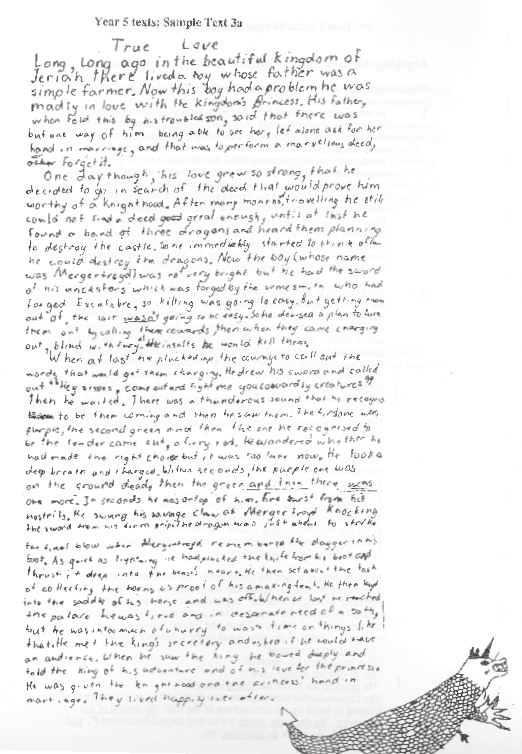 Year 5 texts: Sample Text 3a
True Love
Long, long ago in the beautiful kingdom of
Jeriah there lived a boy whose father was a
simple farmer. Now this boy had a problem he was
madly in love with the kingdom's Princess. His father,
when told this by his troubled son, said that there was
but one way of him being able to see her, let alone ask for her
hand in marriage, and that was to perform a marvellous deed,
forget it.
One day though, his love grew so strong, that he
decided to go in search of the deed that would prove him
worthy of a knighthood. After many months travelling he still
could not find a deed great enough, until at last he
found a band of three dragons and heard them planning
to destroy the castle. So he immediately started to think of how
he could destroy the dragons. Now the boy (whose name
was Mergertroyd) was not very bright but he had the sword
of his ancestors which was forged by the same who had
forged Escalebre, so killing was going to easy. But getting them
out of the lair wasn't going to be easy. So he devised a plan to lure
them out by calling them cowards, then when they came charging
out, blind with fury, insults he would kill them.
When at last he plucked up the courage to call out the
words that would get them charging. He drew his sword and called
out "Hey sissies, come out and fight me you cowardly creatures"
Then he waited. There was a thunderous sound that he recognised
to be them coming and then he saw them. The first one was
purple, the second green and then the one he recognised to
be the leader came out, a fiery red. He wondered whether he
had made the right choice but it was too late now. He took a
deep breath and charged. Within seconds, the purple one was
on the ground dead, then the green and then there was
one more. In seconds he was on top of him. Fire burst from his
nostrils. He swung his savage claw at Mergertroyd knocking
the sword from his firm grip. The dragon was just about to strike
the final blow when Mergertroyd remembered the dagger in his
boot. As quick as lightning he had plucked the knife from his boot and
thrust it deep into the beast's heart. He then set about the task
of collecting the horns as proof of his amazing feat. He then leapt
into the saddle of his horse and was off. When at last he reached
the palace he was tired and in desparate need of a bath,
but he was in too much of a hurry to waste time on things like
that. He met the king's secretary and asked if he could have
an audience. When he saw the king he bowed deeply and
told the king of his adventure and of his love for the princess.
He was given the knighthood and the princess' hand in
marriage. They lived happily ever after.